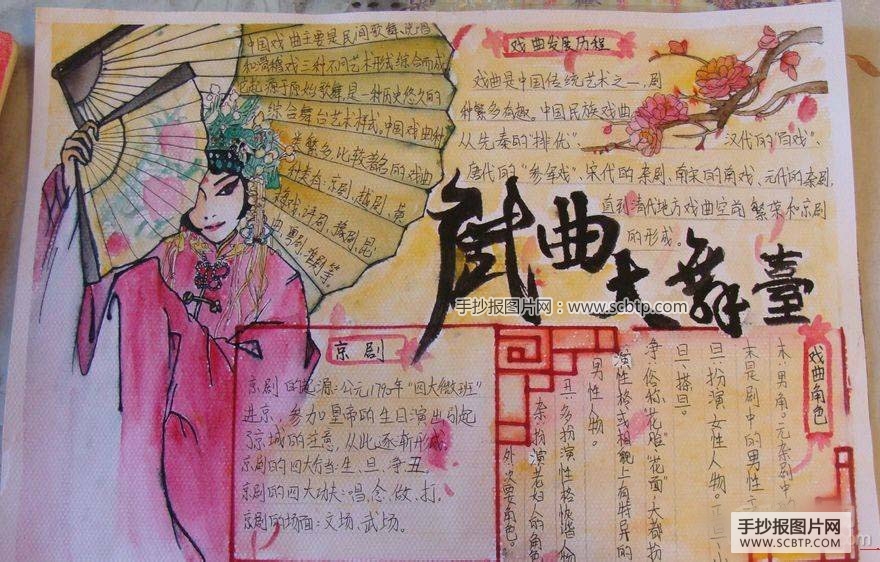 中国戏曲主要是民间歌舞、说唱
和滑稽戏三种不同艺术形式综合而成
它起源于原始歌舞,是一种历史悠久的
综合舞台艺术样式。中国戏曲种
类繁多,比较著名的戏曲
种类有:京剧、越剧、黄
梅戏、评剧、豫剧、昆
曲、粤剧、淮剧等。
戏曲发展历程
戏曲是中国传统艺术之一,剧
种繁多有趣。中国民族戏曲,
从先秦的"排优"、
汉代的"百戏"、
唐代的"参军戏"、宋代的杂剧、南宋的南戏、元代的杂剧,
直到清代地方戏曲空前繁荣和京剧
的形成。
戏曲大舞臺
手抄报图片网:www.scbtp.com
京剧
京剧的起源:公元1790年"四大徽班"
进京,参加皇帝的生日演出引起
了京城的注意,从此逐渐形成。
京剧的四大行当:生、旦、净、丑。
京剧的四大功夫:唱、念、做、打。
京剧的场面:文场、武场。
戏曲角色
末:男角。元杂剧中
末是剧中的男性
旦:扮演女性人物。
旦、搽旦。
净:俗称"花脸""花面",大都扮
演性格或相貌上有特异的
男性人物。
丑:多扮演性格诙谐人物
杂:扮演老妇人的角色
外:次要角色。
手抄报图片网
WWW.SCBTP.COM